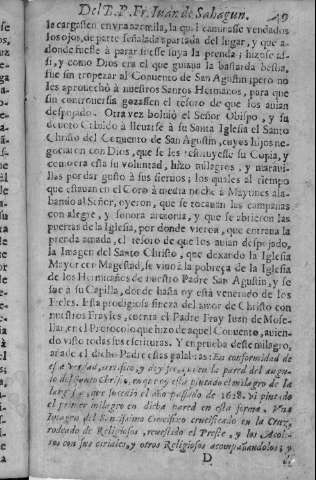 Del P. P. Fr. Iuan de Sahagun. 49
le cargassen en vna azemila, la qual caminasse vendados
los ojos, de parte señalada partada del lugar, y que a-
donde fuesse à parar fuesse suya la prenda; hizose as-
si, y como Dios era el que guiaua la bastarda bestia,
fue sin tropezar al Conuento de San Agustin; pero no
les aprouechò à nuestros Santos Hermanos, para que
sin controuersia gozassen el tesoro de que los auian
despojado. Otra vez boluiò el Señor Obispo, y su
deuoto Cabildo à lleuarse à su Santa Iglesia el Santo
Christo del Conuento de San Agustin, cuyos hijos ne-
gociaron con Dios, que se les restituyesse su Copia, y
como era esta su voluntad, hizo milagros, y maraui-
llas por dar gusto à sus sieruos; los quales al tiempo
que estauan en el Coro à media noche à Maytines ala-
bando al Señor, oyeron, que se tocauan las campanas
con alegre, y sonora armonia, y que se abrieron las
puertas de la Iglesia, por donde vieron, que entraua la
prenda amada, el tesoro de que los auian despojado,
la Imagen del Santo Christo, que dexando la Iglesia
Mayor con Magestad, se vino à la pobreza de la Iglesia
de los Hermitaños de nuestro Padre San Agustin, y se
fue à su Capilla, donde hasta oy està venerado de los
Fieles. Esta prodigiosa fineza del amor de Christo con
nuestros Frayles, cuenta el Padre Fray Iuan de Mose-
llar, en el Protocolo que hizo de aquel Conuento, auien-
do visto todas sus escrituras. Y en prueba deste milagro,
añade el dicho Padre estas palabras: En conformidad de
esta verdad, certifico, y doy fee, que en la pared del angu-
lo del santo Christo, en que oy esta pintado el milagro de la
que sucediò el año passado de 1628. vi pintado
el primer milagro en dicha pared en esta forma. Vna
Imagen del Santissimo Crucifixo crucificado en la Cruz,
rodeado de Religiosos, reuestido el Preste, y los Acoli-
tos con sus ciriales, y otros Religiosos acompañandolos; y
D